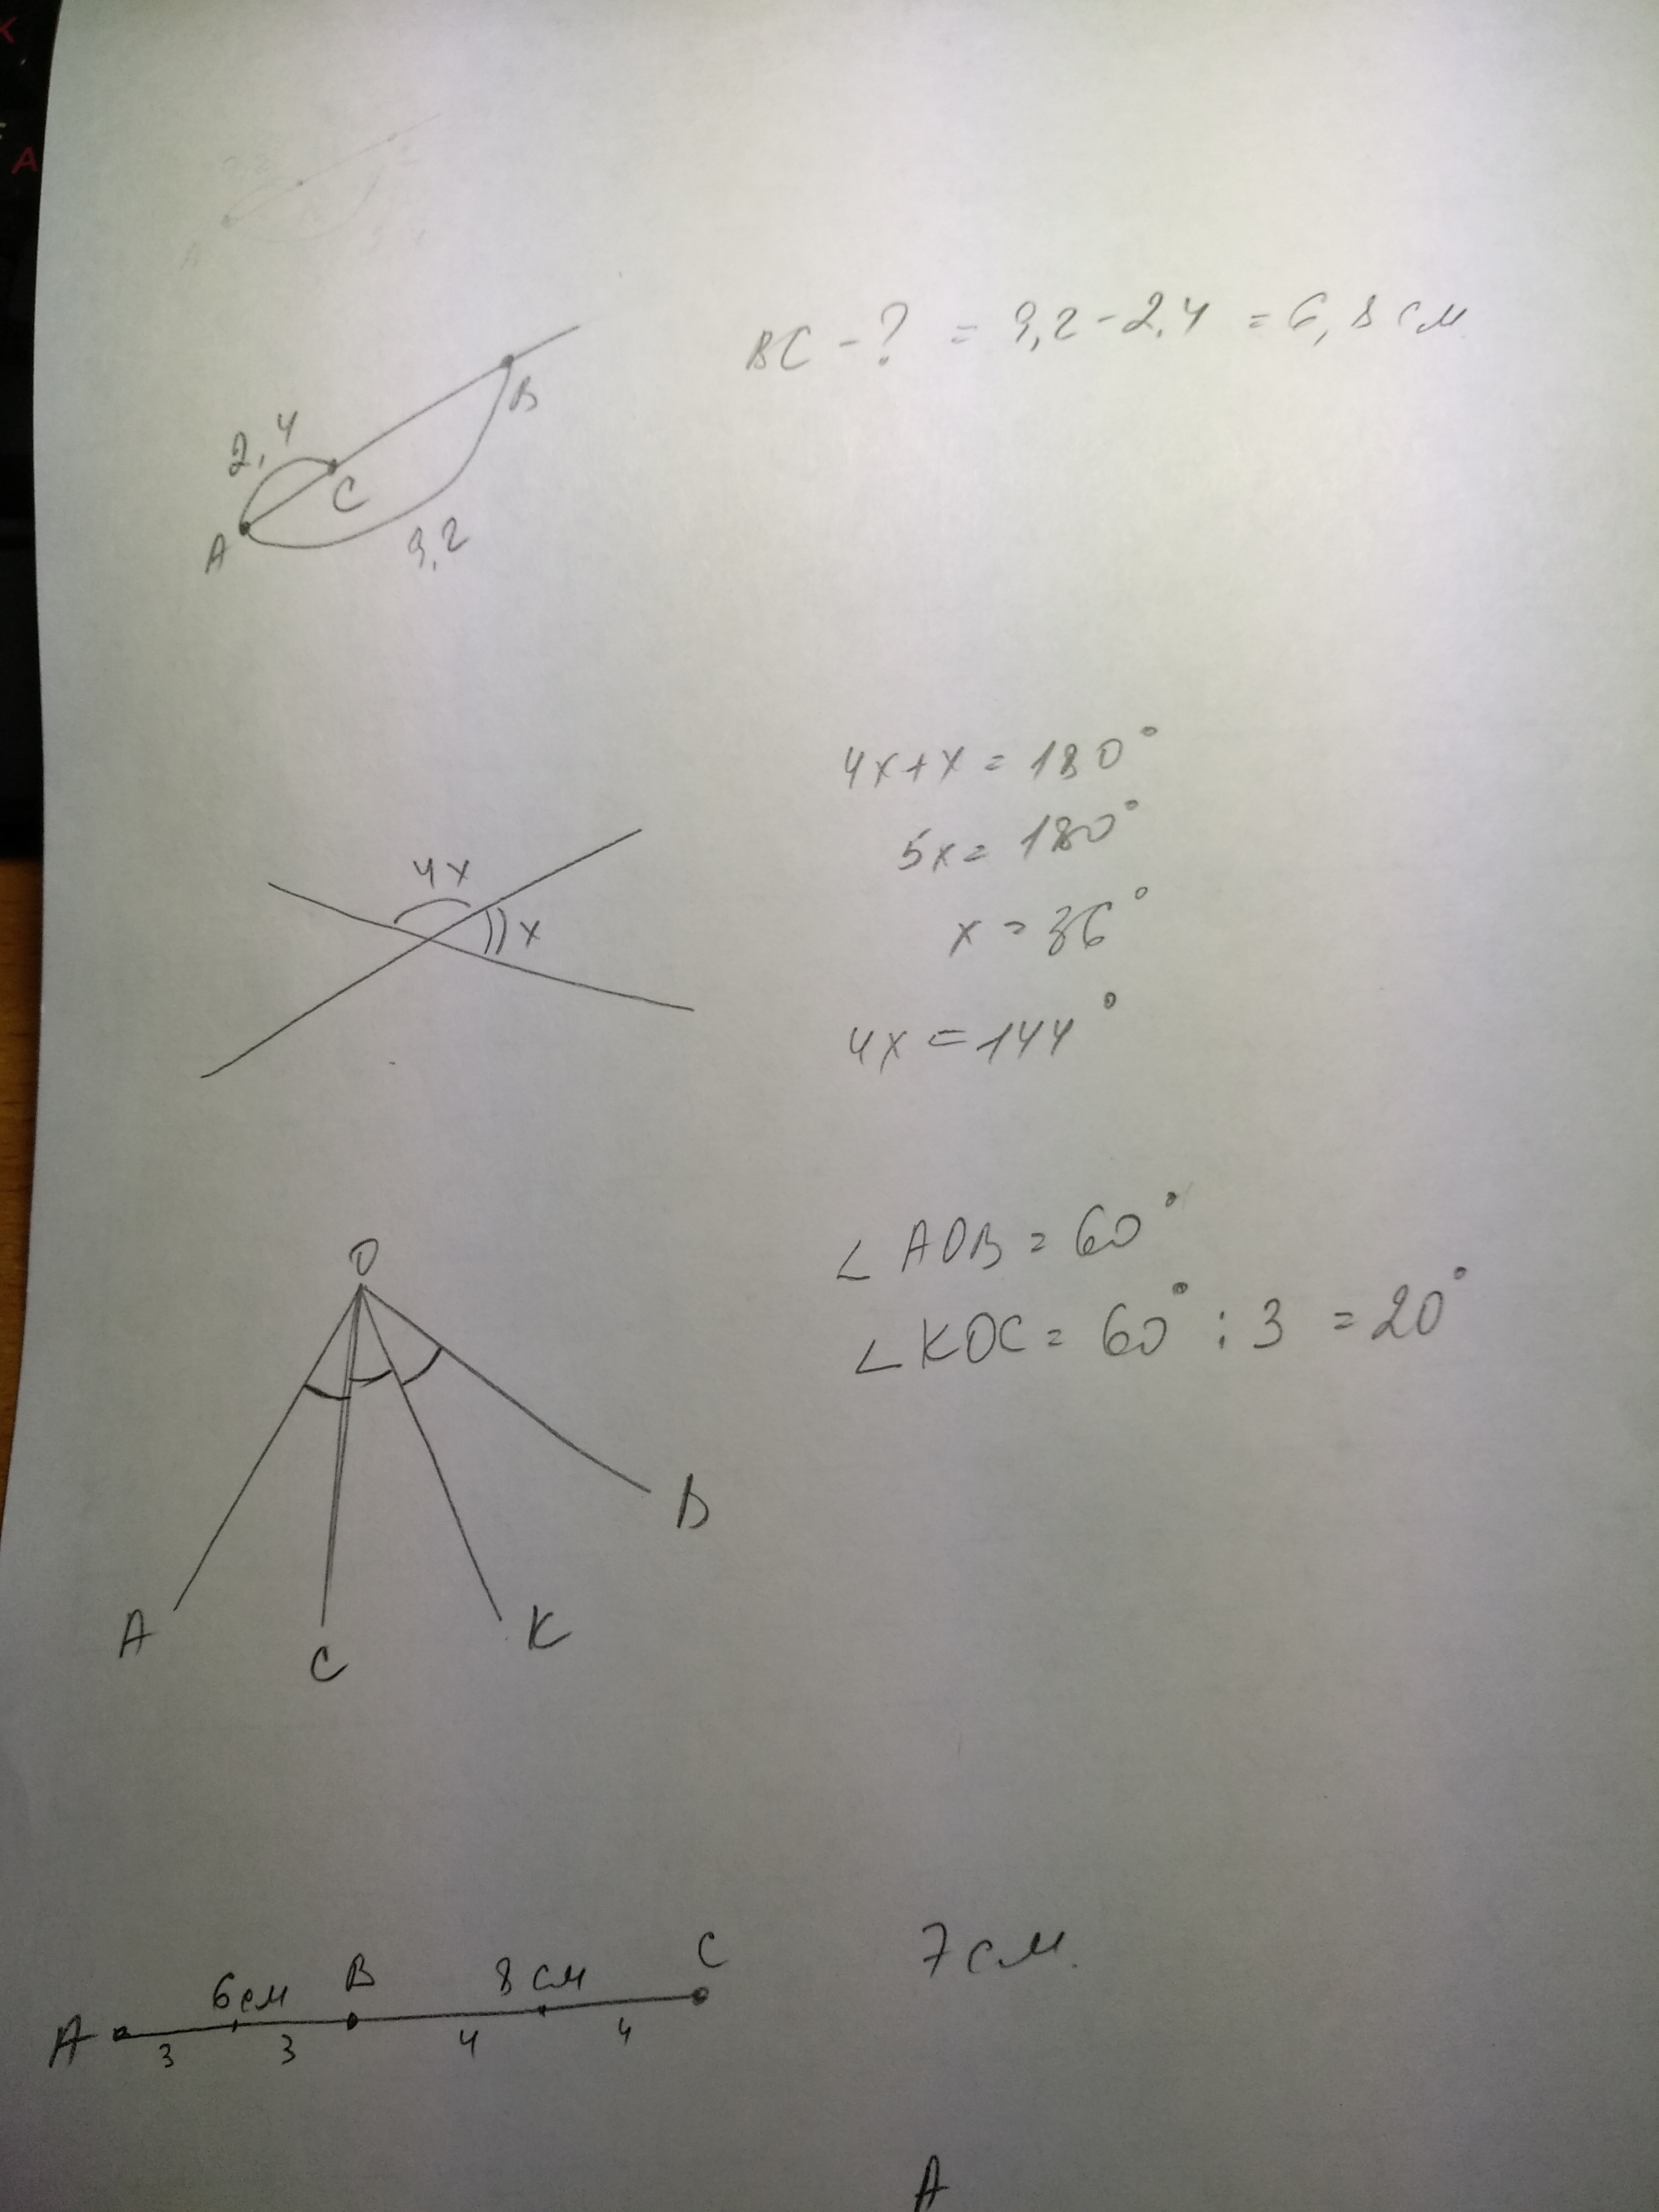 BC - ? = 9,2 - 2,4 = 6,8 см
B
2,4
C
A
9,2
4x + x = 180°
5x = 180°
4x
x
x = 36°
4x = 144°
∠AOB = 60°
O
∠KOC = 60° : 3 = 20°
B
A
K
C
7 см.
C
6 см B 8 см
A
3 3 4 4
A